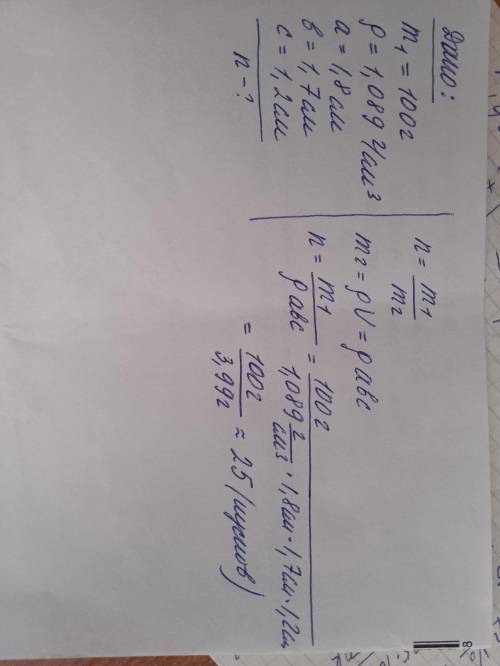 Дано:
m₁ = 100г
ρ = 1,089 г/см³
a = 1,8 см
в = 1,7 см
c = 1,2 см
n - ?
n = m₁ / m₂
m₂ = ρV = ρавс
n = m₁ / ρавс = 100г / 1,089 г/см³ · 1,8см · 1,7см · 1,2см
= 100г / 3,99г = 25 (кусков)
8